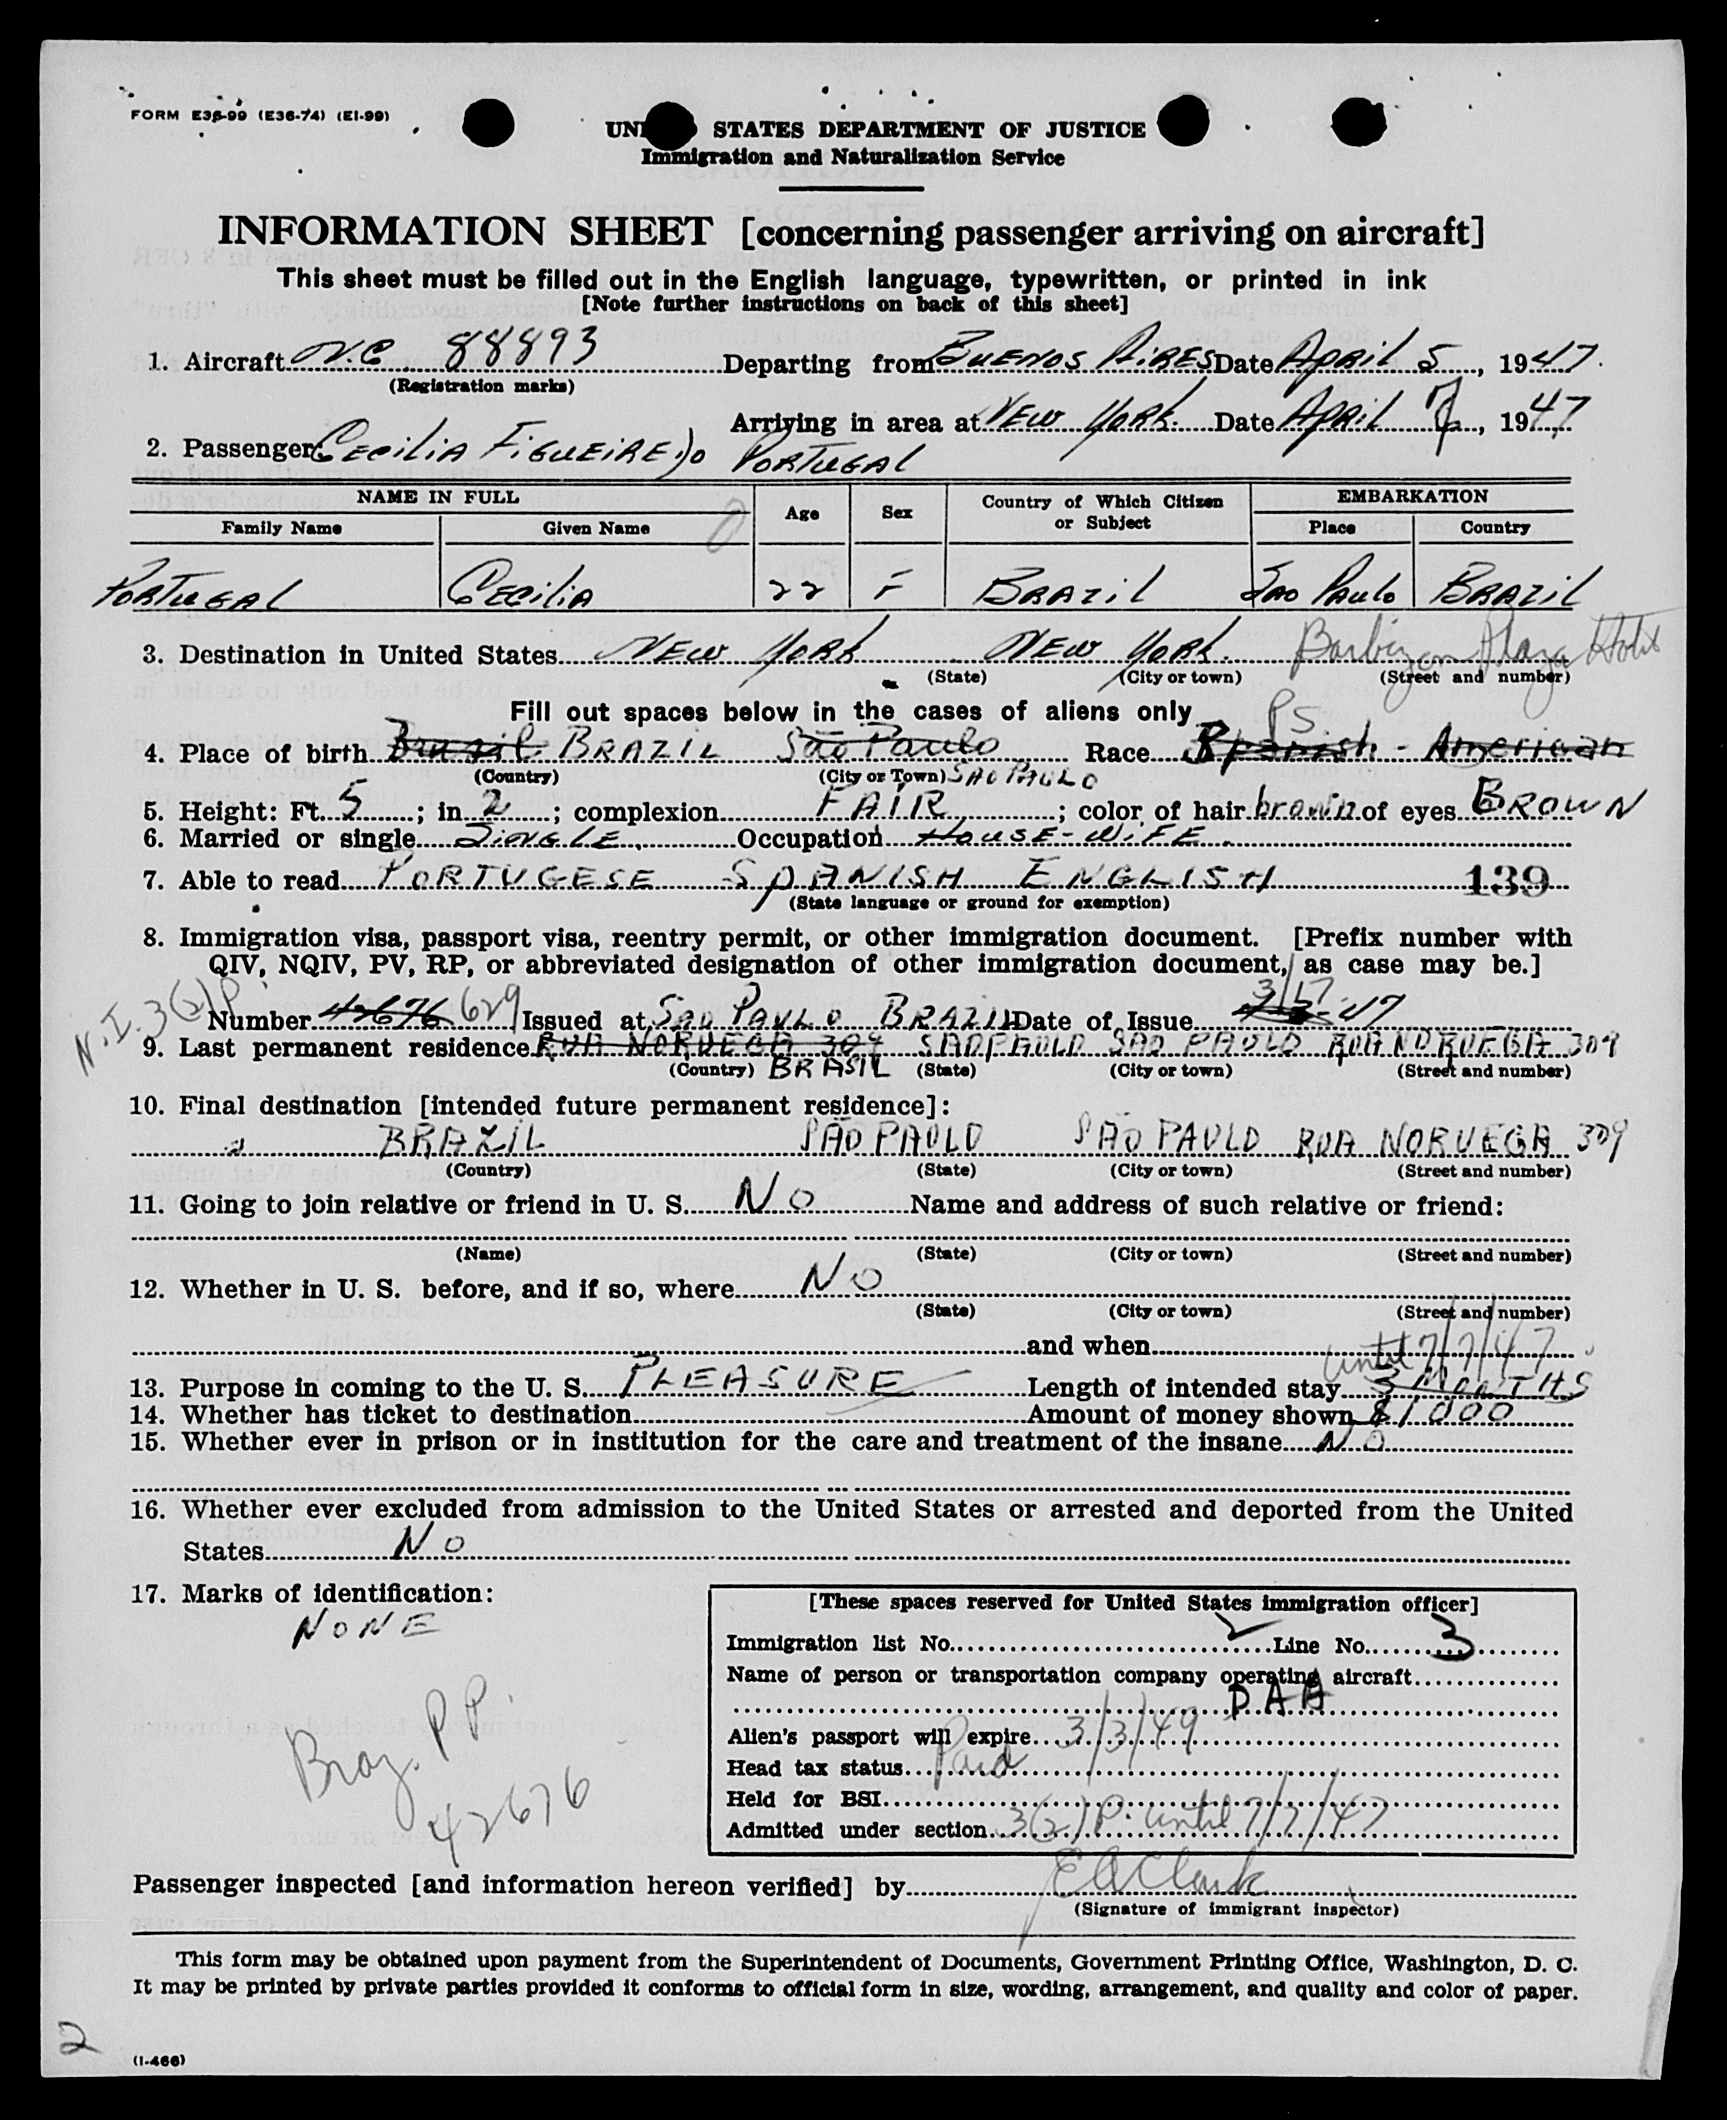 FORM E36-99 (E36-74) (EI-99)
UNI STATES DEPARTMENT OF JUSTICE
Immigration and Naturalization Service
INFORMATION SHEET [concerning passenger arriving on aircraft]
This sheet must be filled out in the English language, typewritten, or printed in ink
[Note further instructions on back of this sheet]
1. Aircraft N.C 88893 Departing from BUENOS AIRES Date APRIL 5, 1947.
(Registration marks)
Arriving in area at NEW YORK. Date APRIL 7, 1947
2. Passenger CECILIA FIGUEIREDO PORTUGAL
NAME IN FULL Age Sex Country of Which Citizen or Subject EMBARKATION
Family Name Given Name Place Country
PORTUGAL CECILIA 22 F BRAZIL SAO PAULO BRAZIL
3. Destination in United States NEW YORK NEW YORK. Barbizon Plaza Hotel
(State) (City or town) (Street and number)
Fill out spaces below in the cases of aliens only
PS.
4. Place of birth Brazil. BRAZIL São Paulo Race Spanish - American
(Country) (City or Town) SAO PAULO
5. Height: Ft. 5; in. 2; complexion FAIR; color of hair brown of eyes BROWN
6. Married or single SINGLE Occupation HOUSE-WIFE
7. Able to read PORTUGESE SPANISH ENGLISH 139
(State language or ground for exemption)
8. Immigration visa, passport visa, reentry permit, or other immigration document. [Prefix number with
QIV, NQIV, PV, RP, or abbreviated designation of other immigration document, as case may be.]
N.I. 3(2)P
3/17
Number 42676 629 Issued at SAO PAULO BRAZIL Date of Issue 47
9. Last permanent residence RUA NORUEGA 309 SAO PAULO SAO PAULO RUA NORUEGA 309
(Country) BRASIL (State) (City or town) (Street and number)
10. Final destination [intended future permanent residence]:
BRAZIL SÃO PAULO SÃO PAULO RUA NORUEGA 309
(Country) (State) (City or town) (Street and number)
11. Going to join relative or friend in U. S. NO Name and address of such relative or friend:
(Name) (State) (City or town) (Street and number)
12. Whether in U. S. before, and if so, where NO
(State) (City or town) (Street and number)
and when until 7/7/47
13. Purpose in coming to the U. S. PLEASURE Length of intended stay 3 MONTHS
14. Whether has ticket to destination Amount of money shown $1000
15. Whether ever in prison or in institution for the care and treatment of the insane NO
16. Whether ever excluded from admission to the United States or arrested and deported from the United
States NO
17. Marks of identification:
NONE
Braz. PP.
42676
[These spaces reserved for United States immigration officer]
Immigration list No. 2 Line No. 3
Name of person or transportation company operating aircraft
PAA
Alien's passport will expire 3/3/49
Head tax status Paid
Held for BSI
Admitted under section 3(2)P. until 7/7/47
Passenger inspected [and information hereon verified] by E A Clark
(Signature of immigrant inspector)
This form may be obtained upon payment from the Superintendent of Documents, Government Printing Office, Washington, D. C.
It may be printed by private parties provided it conforms to official form in size, wording, arrangement, and quality and color of paper.
2
(I-466)